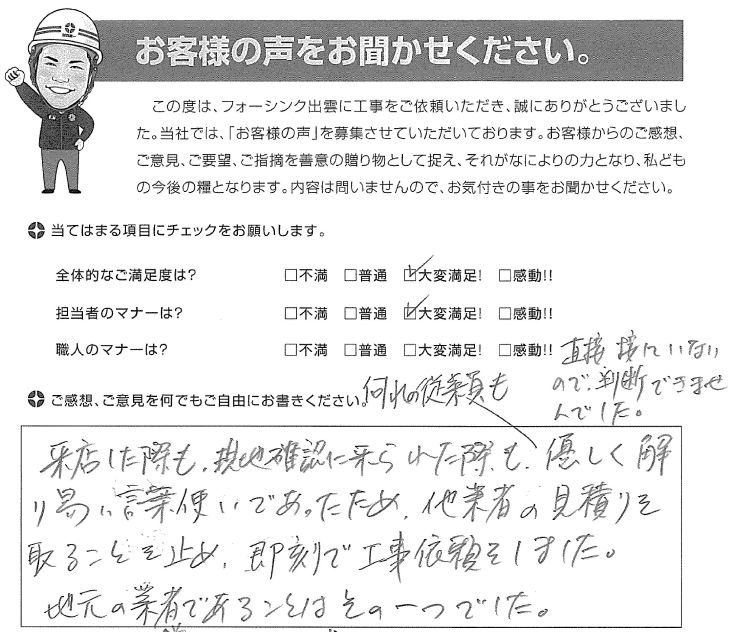 お客様の声をお聞かせください。
この度は、フォーシンク出雲に工事をご依頼いただき、誠にありがとうございまし
た。当社では、「お客様の声」を募集させていただいております。お客様からのご感想、
ご意見、ご要望、ご指摘を善意の贈り物として捉え、それがなによりの力となり、私ども
の今後の糧となります。内容は問いませんので、お気付きの事をお聞かせください。
当てはまる項目にチェックをお願いします。
全体的なご満足度は? □不満 □普通 ☑大変満足! □感動!!
担当者のマナーは? □不満 □普通 ☑大変満足! □感動!!
職人のマナーは? □不満 □普通 □大変満足! □感動!!
直接接していない
ので、判断できませ
んでした。
ご感想、ご意見を何でもご自由にお書きください。
何れの従業員も
来店した際も、現地確認に来られた際も、優しく解
り易い言葉使いであったため、他業者の見積りを
取ることを止め、即刻で工事依頼をしました。
地元の業者であることはその一つでした。